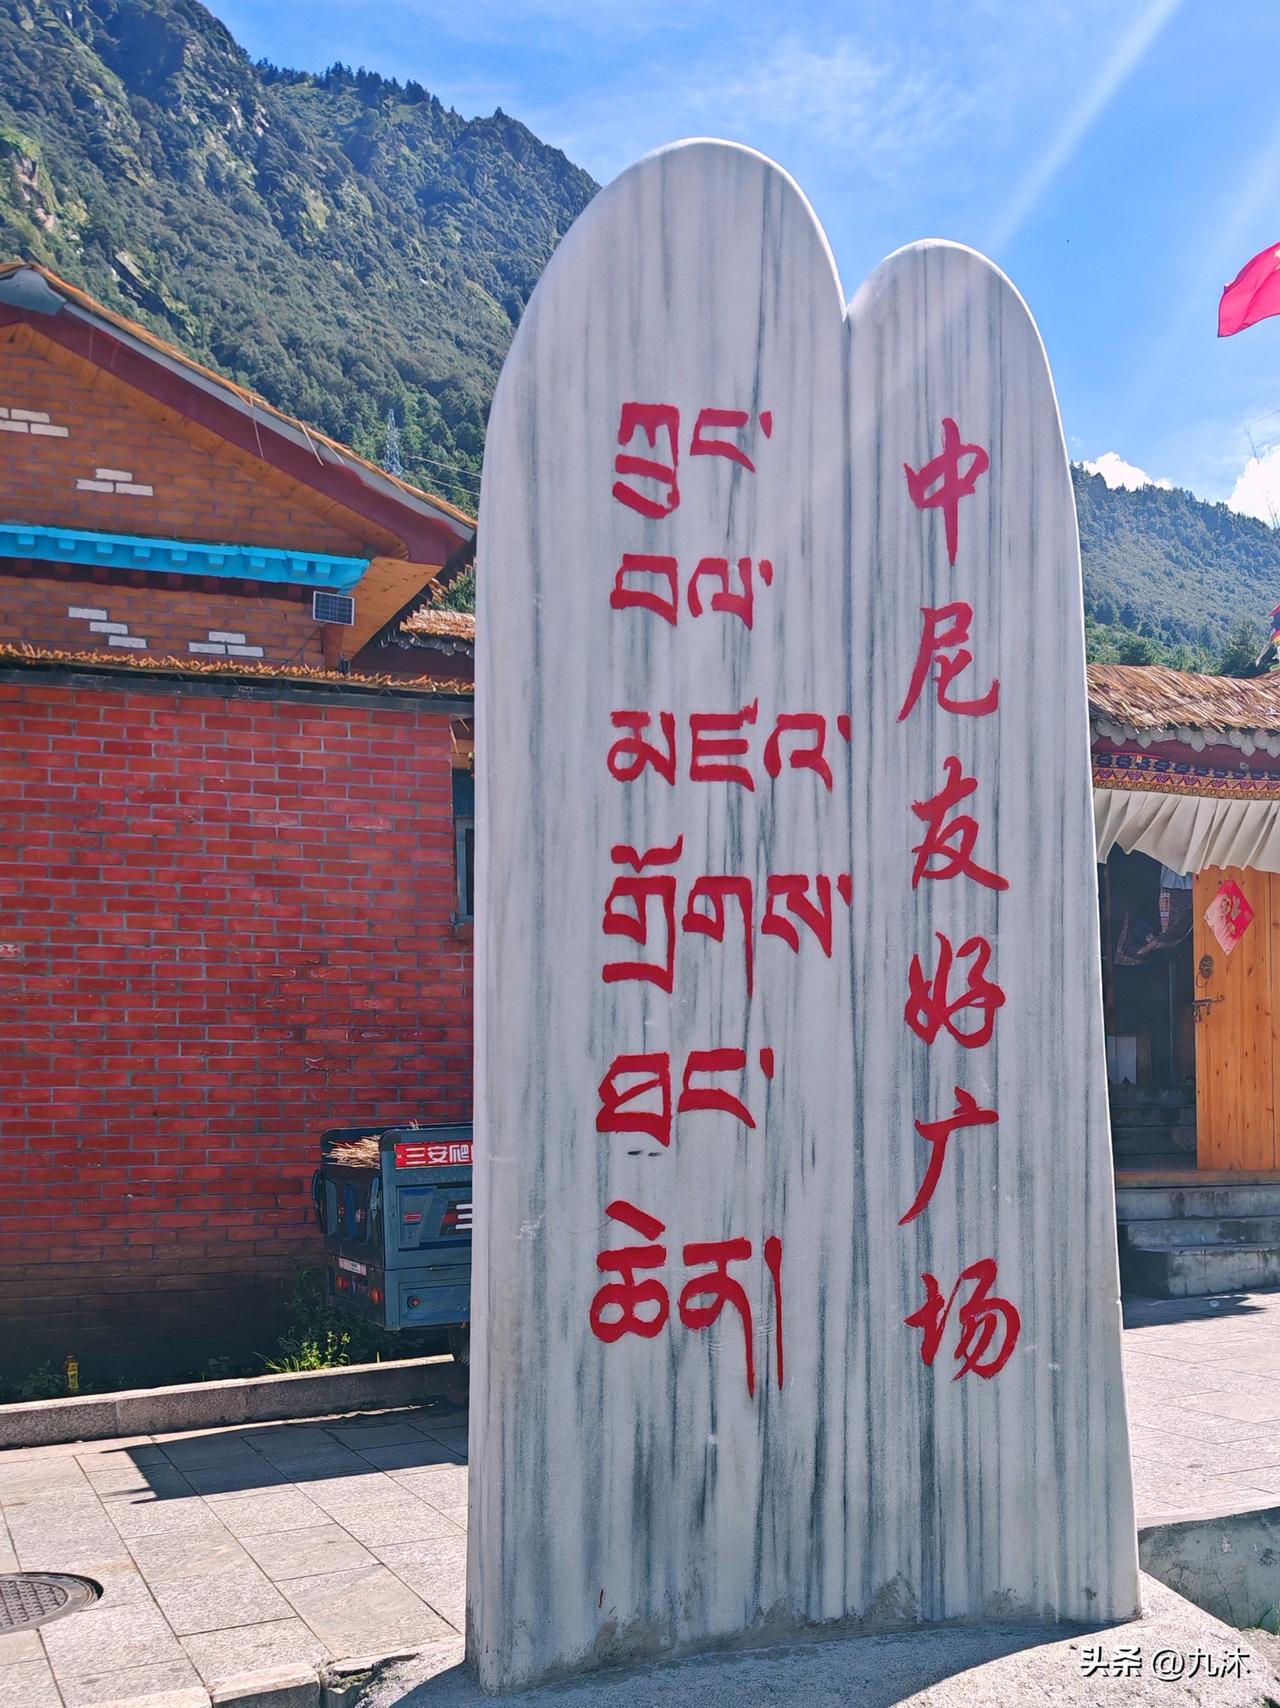 ཀྲུང་
བལ་
མཛའ་
གྲོགས་
ཐང་
ཆེན།
中尼友好广场
三安爬
头条 @九沐